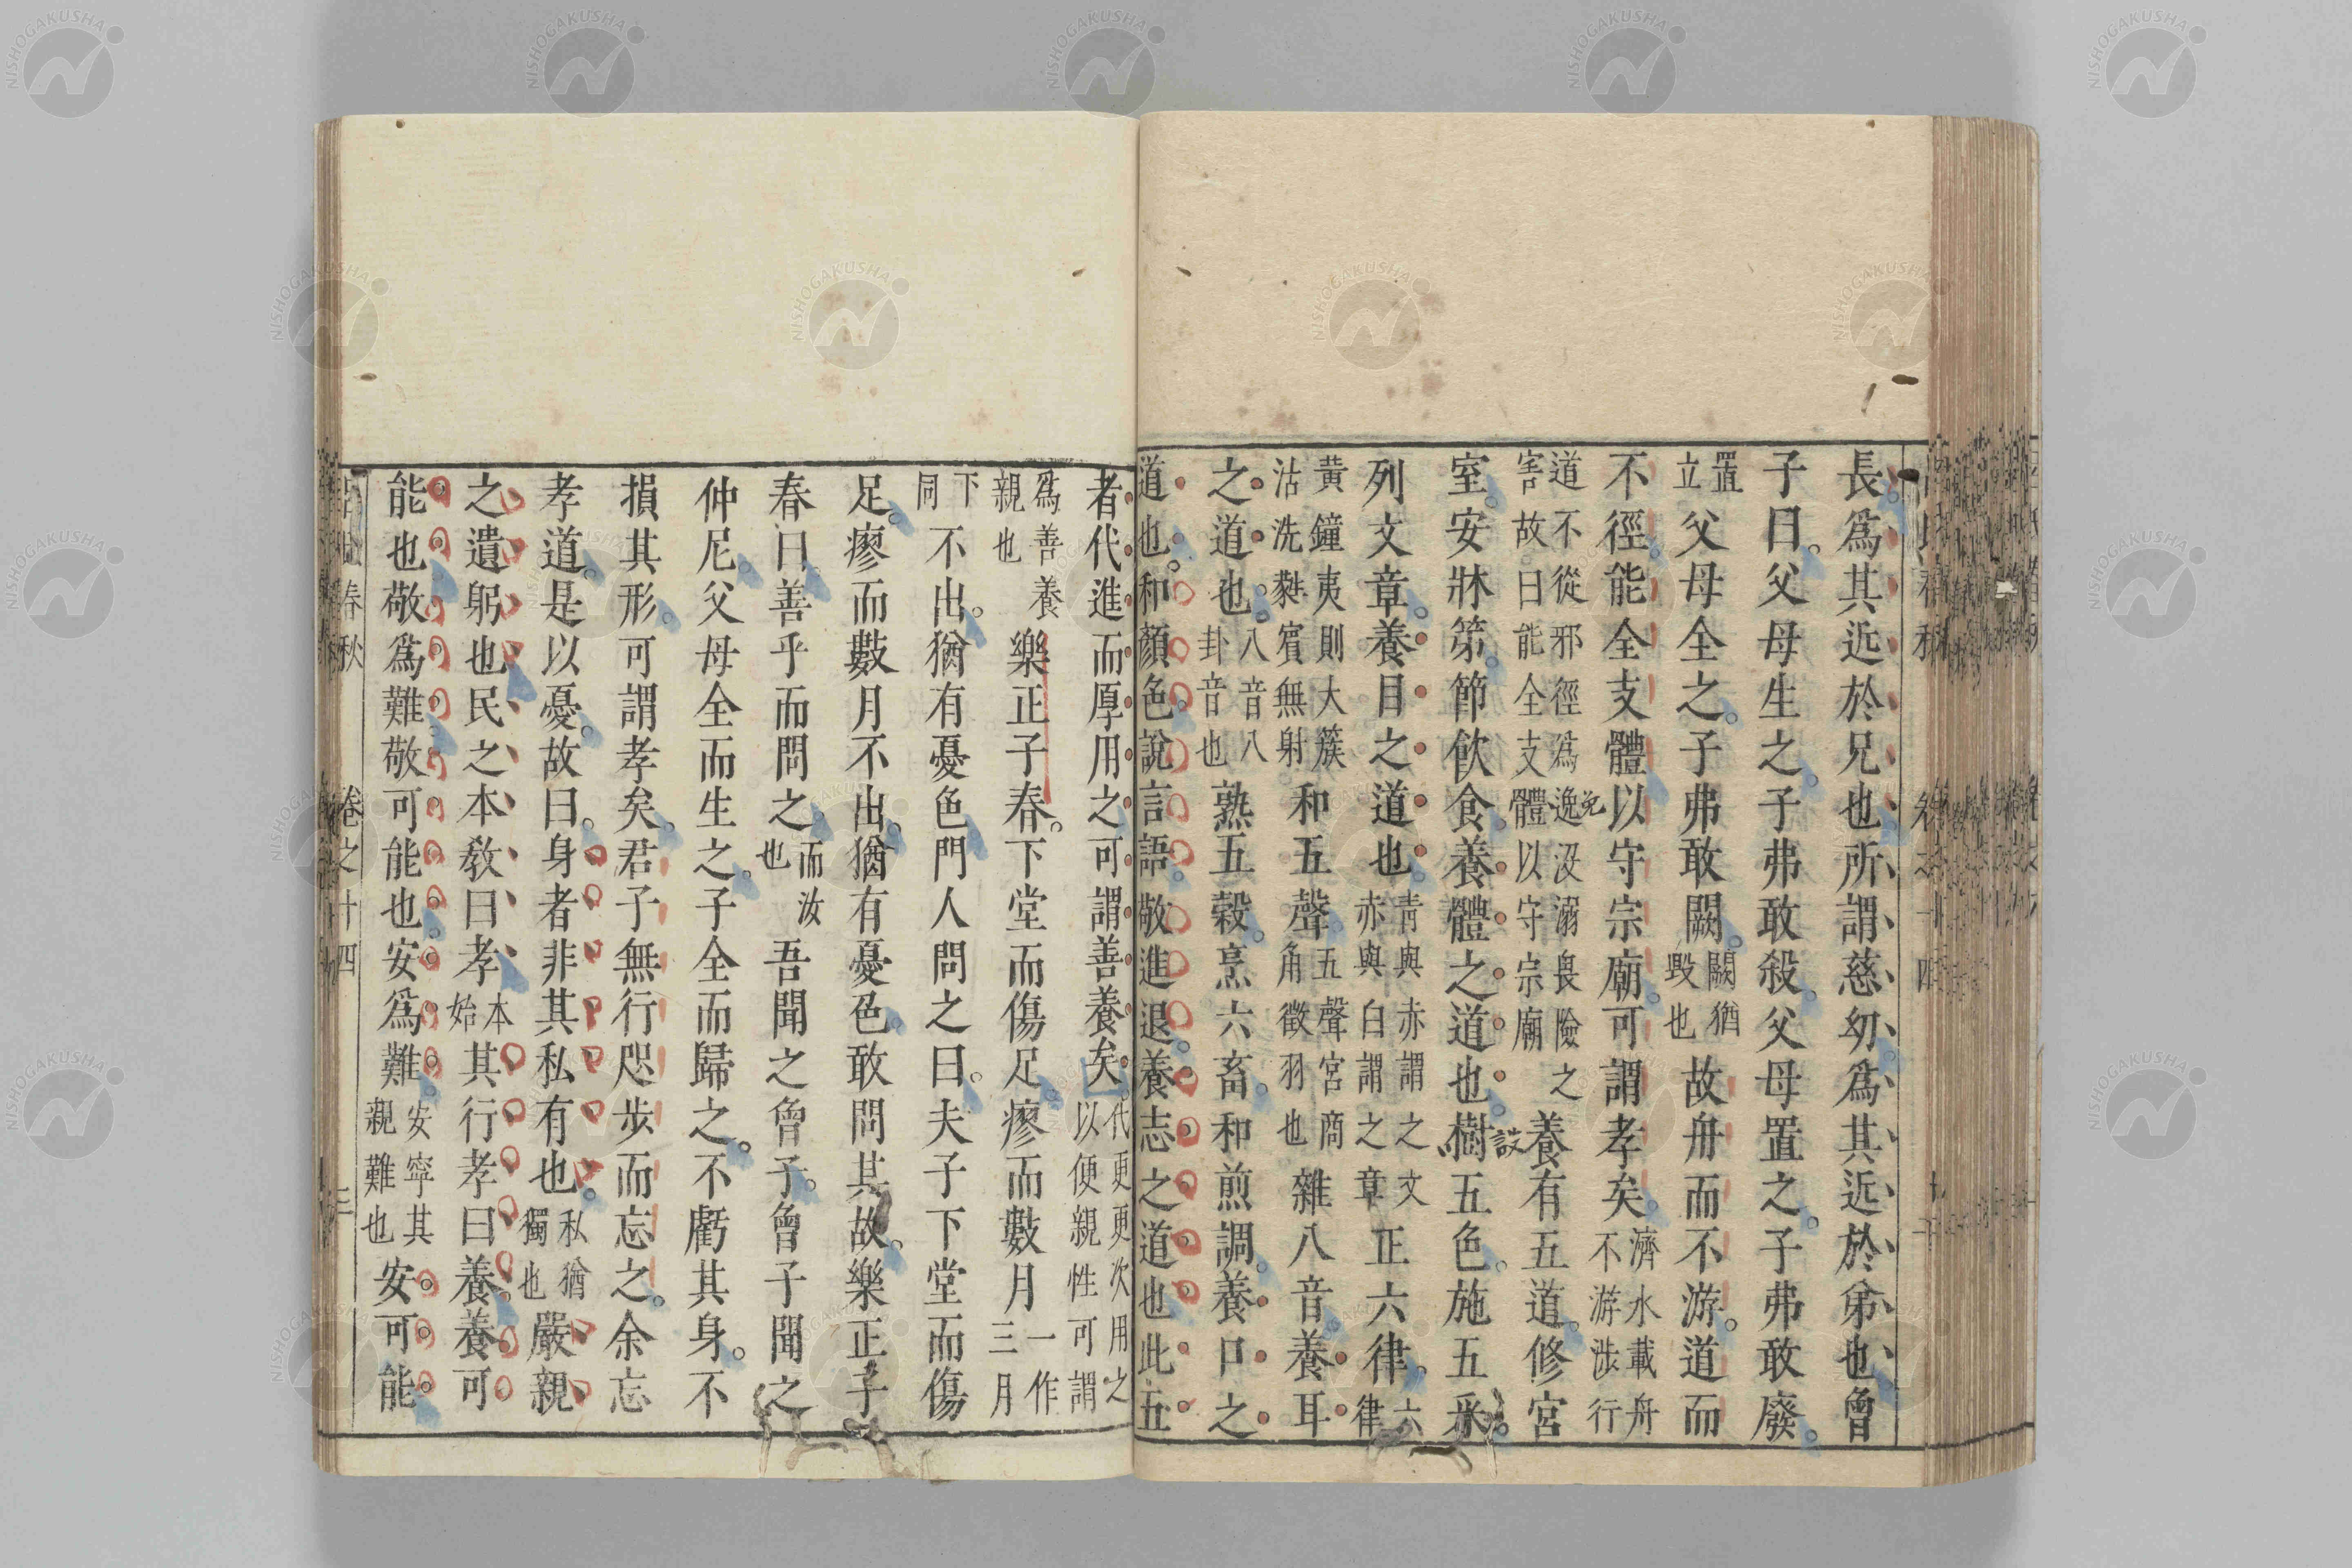 長爲其近於兄也所謂慈幼爲其近於弟也曾
子曰父母生之子弗敢殺父母置之子弗敢廢
置立父母全之子弗敢闕闕猶毀也故舟而不游道而
不徑能全支體以守宗廟可謂孝矣濟水載舟不游涉行
道不從邪徑爲逸沒溺畏險之害故曰能全支體以守宗廟養有五道修宮
免
設
室安牀笫節飲食養體之道也樹五色施五采
列文章養目之道也青與赤謂之文赤與白謂之章正六律六律
黃鐘夷則大簇沽洗蕤賓無射和五聲五聲宮商角徵羽也雜八音養耳
之道也八音八卦音也熟五穀烹六畜和煎調養口之
道也和顏色說言語敬進退養志之道也此五
者代進而厚用之可謂善養矣代更更次用之以便親性可謂
爲善養親也樂正子春下堂而傷足瘳而數月一作三月
下同不出猶有憂色門人問之曰夫子下堂而傷
足瘳而數月不出猶有憂色敢問其故樂正子
春曰善乎而問之而汝也吾聞之曾子曾子聞之
仲尼父母全而生之子全而歸之不虧其身不
損其形可謂孝矣君子無行咫步而忘之余忘
孝道是以憂故曰身者非其私有也私猶獨也嚴親
之遺躬也民之本教曰孝本始其行孝曰養養可
能也敬爲難敬可能也安爲難安寧其親難也安可能
春秋 卷之十四 三
NISHOGAKUSHA